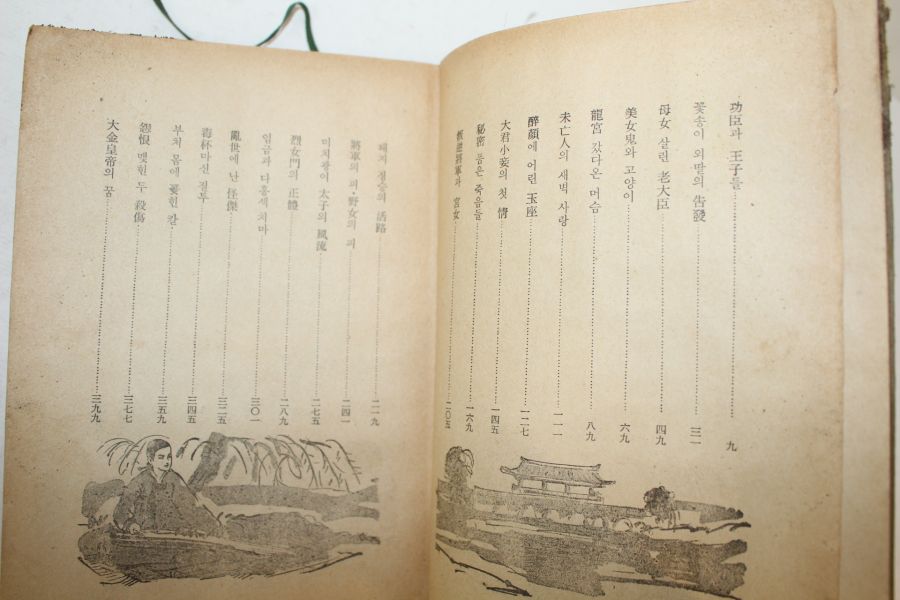 功臣과 王子들 九
꽃송이 외딸의 告發 三一
母女 살린 老大臣 四九
美女鬼와 고양이 六九
龍宮 갔다온 머슴 八九
未亡人의 새벽 사랑 一一一
醉顔에 어린 玉座 一二七
大君小妾의 첫 情 一四五
秘密 품은 죽음들 一六九
叛逆將軍과 宮女 二〇五
돼지 정승의 活路 二一九
將軍의 피·野女의 피 二四一
미치광이 太子의 風流 二七五
烈女門의 正體 二八九
임금과 다홍색 치마 三〇一
亂世에 난 怪傑 三二五
毒杯마신 질투 三四五
부처 몸에 꽂힌 칼 三五九
怨恨 맺힌 두 殺傷 三七七
大金皇帝의 꿈 三九九